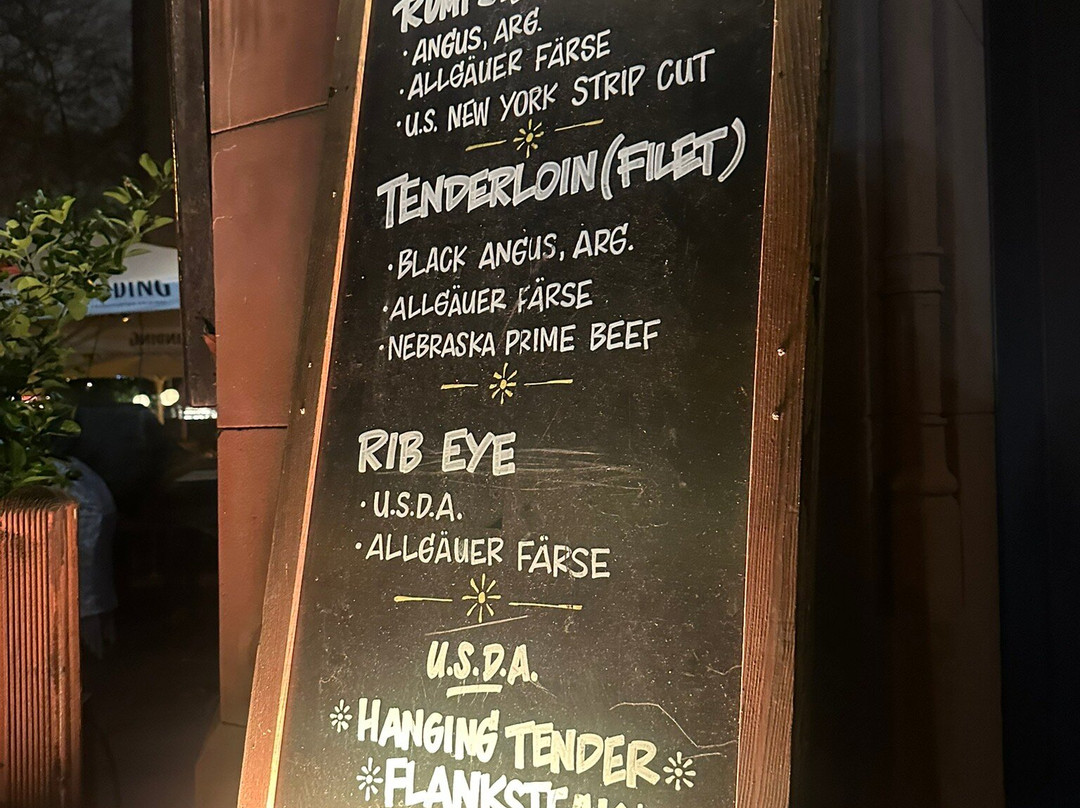 · ANGUS, ARG.
· ALLGÄUER FÄRSE
· U.S. NEW YORK STRIP CUT
TENDERLOIN (FILET)
· BLACK ANGUS, ARG.
· ALLGÄUER FÄRSE
· NEBRASKA PRIME BEEF
RIB EYE
· U.S.D.A.
· ALLGÄUER FÄRSE
U.S.D.A.
HANGING TENDER